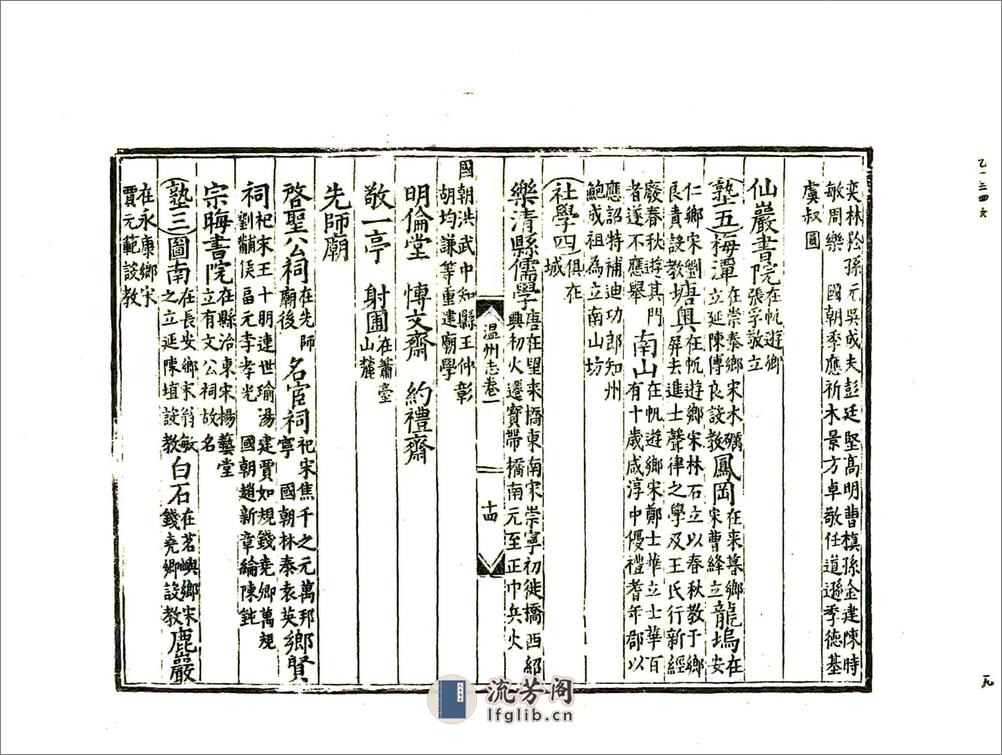 奕林淞孫元吳成夫彭廷堅高明曹槙孫金建陳時
敏周樂 國朝季應祈木景方卓敬任道遜季德基
虞叔圓
仙巖書院在帆遊鄉張孚敬立
塾五梅潭在崇泰鄉宋木礪立延陳傅良設教鳳岡在來暮鄉宋曹絳立龍塢在安
仁鄉宋劉良貴設教塘奧在帆遊鄉宋林石立以春秋教于鄉屏去進士聲律之學及王氏行新經
廢春秋遊其門者遂不應舉南山在帆遊鄉宋鄭士華立士華百有十歲咸淳中優禮耆年郡以
應詔特補迪功郎知州鮑成祖為立南山坊
社學四俱在城
樂清縣儒學唐在望來橋東南宋崇寧初徙橋西紹興初火遷寶帶橋南元至正中兵火
國朝洪武中知縣王仲彰胡均謙等重建廟學
明倫堂 愽文齋 約禮齋
敬一亭 射圃在簫臺山麓
先師廟
啓聖公祠在先師廟後 名宦祠祀宋焦千之元萬邦寧 國朝林泰袁英鄉賢
祠祀宋王十朋連世瑜湯建賈如規錢堯卿萬規劉黼侯畐元李孝光 國朝趙新章綸陳鈍
宗晦書院在縣治東宋楊藝堂立有文公祠故名
塾三圖南在長安鄉宋翁敏之立延陳埴設教白石在茗嶼鄉宋錢堯卿設教鹿巖
在永康鄉宋賈元範設教
溫州志卷一
十四
乙一三四六
一九
流芳阁
lfglib.cn